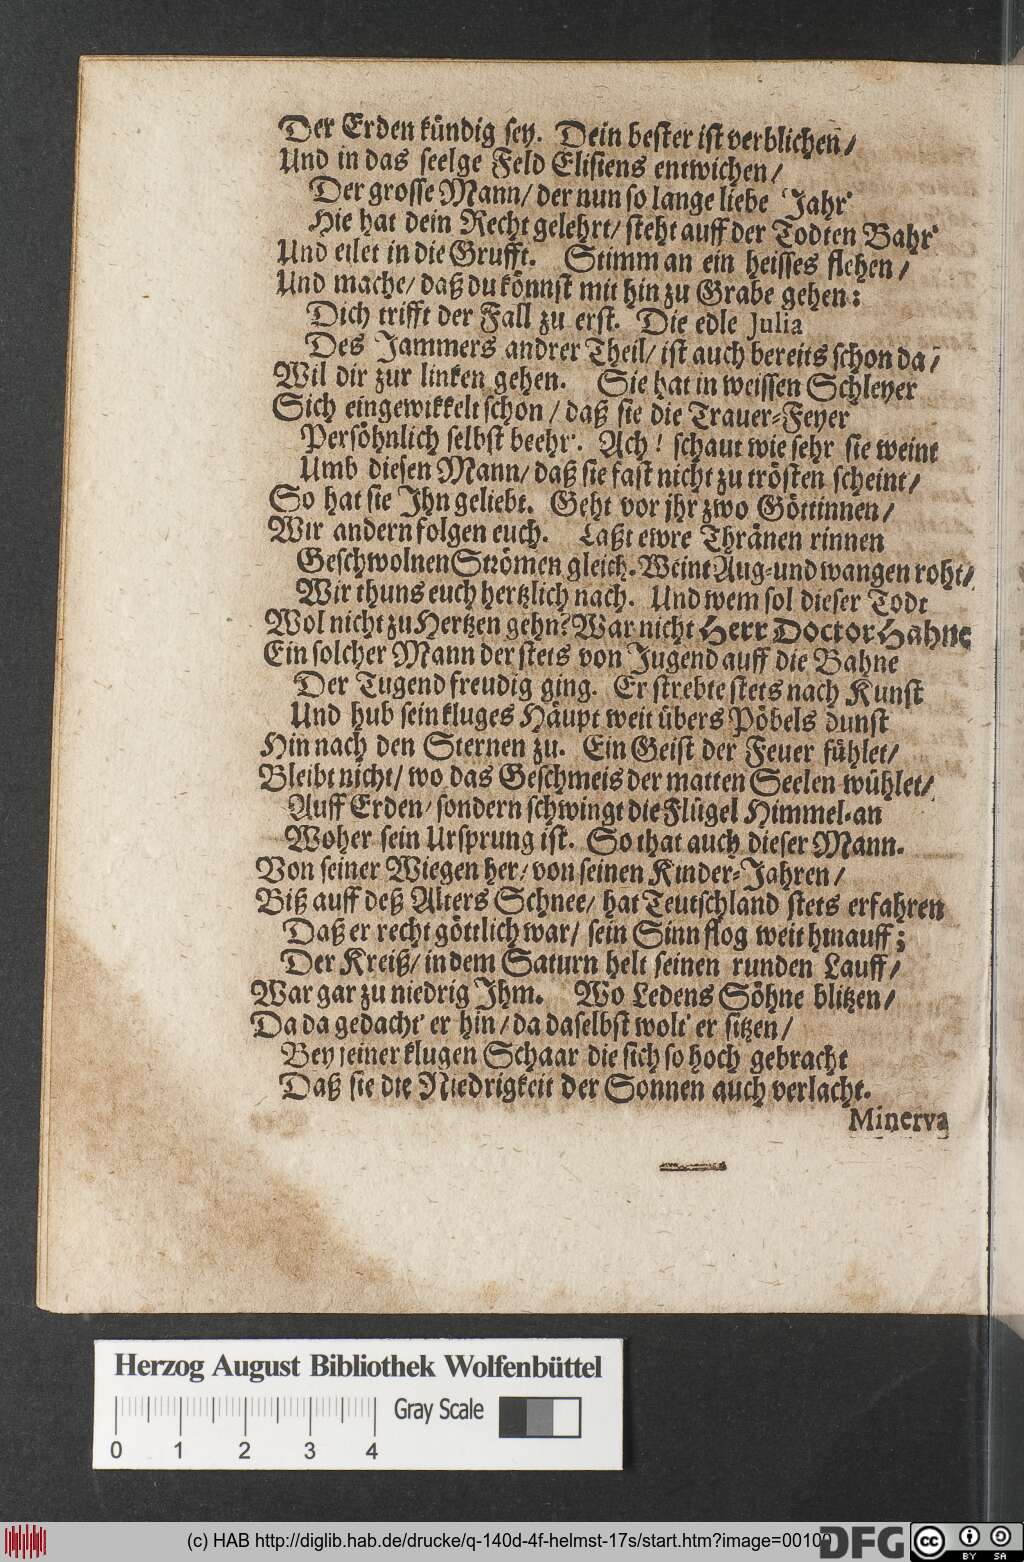 Der Erden kündig sey. Dein bester ist verblichen/
Und in das seelge Feld Elisiens entwichen/
Der grosse Mann/ der nun so lange liebe Jahr'
Hie hat dein Recht gelehrt/ steht auff der Todten Bahr'
Und eilet in die Grufft. Stimm an ein heisses flehen/
Und mache/ daß du könnst mit hin zu Grabe gehen:
Dich trifft der Fall zu erst. Die edle Julia
Des Jammers andrer Theil/ ist auch bereits schon da/
Wil dir zur linken gehen. Sie hat in weissen Schleyer
Sich eingewikkelt schon/ daß sie die Trauer-Feyer
Persöhnlich selbst beehr'. Ach! schaut wie sehr sie weint
Umb diesen Mann/ daß sie fast nicht zu trösten scheint/
So hat sie Ihn geliebt. Geht vor jhr zwo Göttinnen/
Wir andern folgen euch. Laßt ewre Thränen rinnen
Geschwolnen Strömen gleich. Weint Aug-und wangen roht/
Wir thuns euch hertzlich nach. Und wem sol dieser Todt
Wol nicht zu Hertzen gehn? War nicht Herr Doctor Hahne
Ein solcher Mann der stets von Jugend auff die Bahne
Der Tugend freudig ging. Er strebte stets nach Kunst
Und hub sein kluges Häupt weit übers Pöbels dunst
Hin nach den Sternen zu. Ein Geist der Feuer fühlet/
Bleibt nicht/ wo das Geschmeis der matten Seelen wühlet/
Auff Erden/ sondern schwingt die Flügel Himmel-an
Woher sein Ursprung ist. So that auch dieser Mann.
Von seiner Wiegen her/ von seinen Kinder-Jahren/
Biß auff deß Alters Schnee/ hat Teutschland stets erfahren
Daß er recht göttlich war/ sein Sinn flog weit hinauff;
Der Kreiß/ in dem Saturn helt seinen runden Lauff/
War gar zu niedrig Ihm. Wo Ledens Söhne blitzen/
Da da gedacht' er hin/ da daselbst wolt' er sitzen/
Bey seiner klugen Schaar die sich so hoch gebracht
Daß sie die Niedrigkeit der Sonnen auch verlacht.
Minerva
Herzog August Bibliothek Wolfenbüttel
Gray Scale
0 1 2 3 4
(c) HAB http://diglib.hab.de/drucke/q-140d-4f-helmst-17s/start.htm?image=00100
DFG
cc BY SA